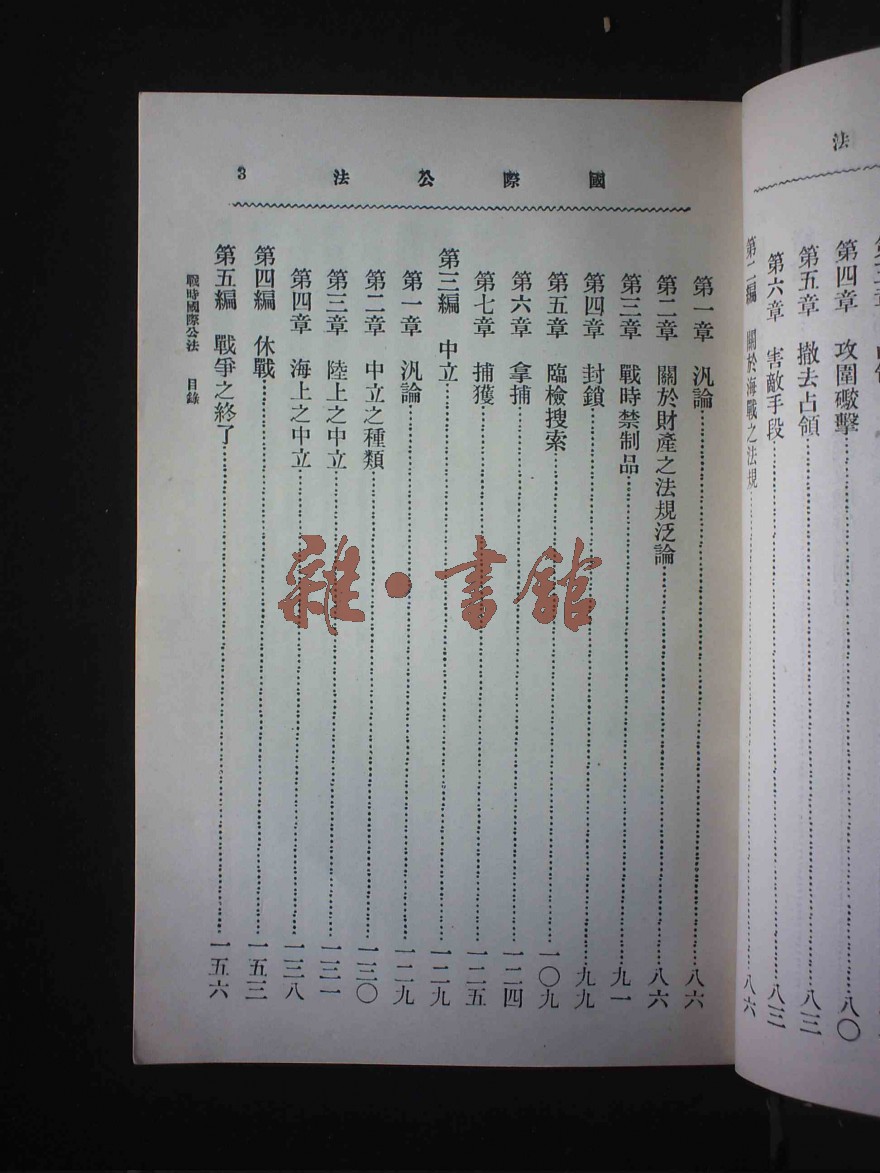 法
第四章　攻圍礮擊……八〇
第五章　撤去占領……八三
第六章　害敵手段……八三
第二編　關於海戰之法規……八六
國際公法　3
第一章　汎論……八六
第二章　關於財產之法規泛論……八六
第三章　戰時禁制品……九一
第四章　封鎖……九九
第五章　臨檢搜索……一〇九
第六章　拿捕……一二四
第七章　捕獲……一二五
第三編　中立……一二九
第一章　汎論……一二九
第二章　中立之種類……一三〇
第三章　陸上之中立……一三一
第四章　海上之中立……一三八
第四編　休戰……一五三
第五編　戰爭之終了……一五六
戰時國際公法　目錄
雜·書館